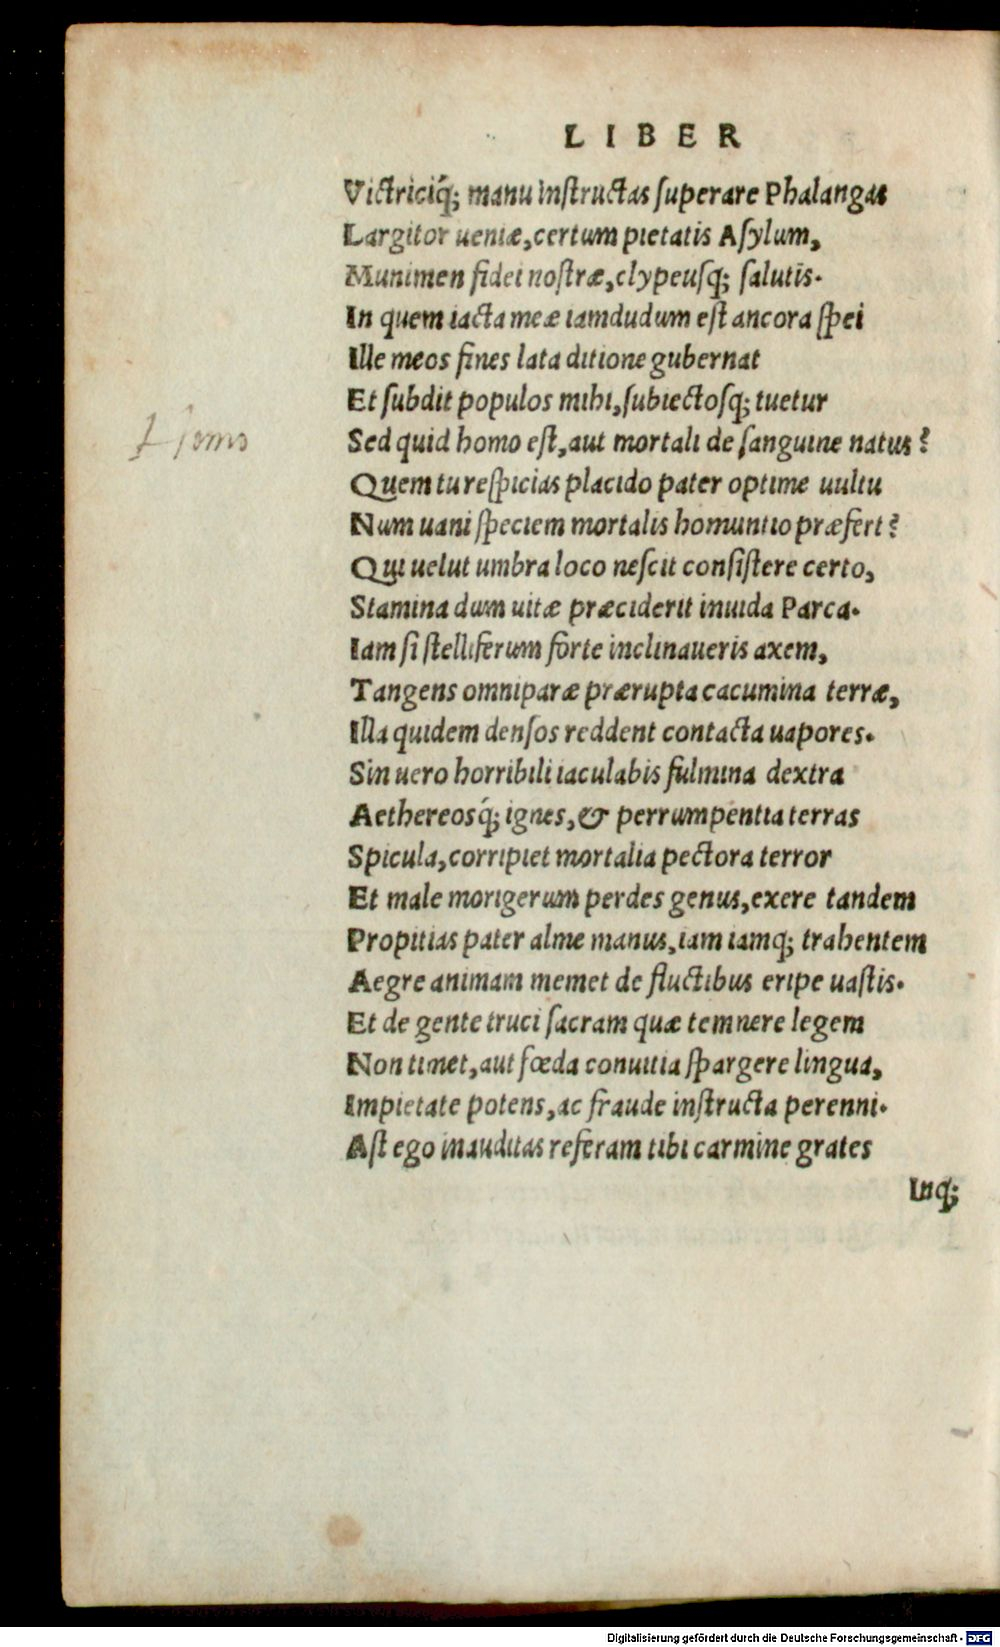 LIBER
Victriciq́; manu instructas superare Phalangas
Largitor ueniæ, certum pietatis Asylum,
Munimen fidei nostræ, clypeusq; salutis.
In quem iacta meæ iamdudum est ancora spei
Ille meos fines lata ditione gubernat
Et subdit populos mihi, subiectosq; tuetur
Homo
Sed quid homo est, aut mortali de sanguine natus?
Quem tu respicias placido pater optime uultu
Num uani speciem mortalis homuntio præfert?
Qui uelut umbra loco nescit consistere certo,
Stamina dum uitæ præciderit inuida Parca.
Iam si stelliferum forte inclinaueris axem,
Tangens omniparæ prærupta cacumina terræ,
Illa quidem densos reddent contacta uapores.
Sin uero horribili iaculabis fulmina dextra
Aethereosq́; ignes, & perrumpentia terras
Spicula, corripiet mortalia pectora terror
Et male morigerum perdes genus, exere tandem
Propitias pater alme manus, iam iamq; trahentem
Aegre animam memet de fluctibus eripe uastis.
Et de gente truci sacram quæ temnere legem
Non timet, aut fœda conuitia spargere lingua,
Impietate potens, ac fraude instructa perenni.
Ast ego inauditas referam tibi carmine grates
Inq;
Digitalisierung gefördert durch die Deutsche Forschungsgemeinschaft - DFG